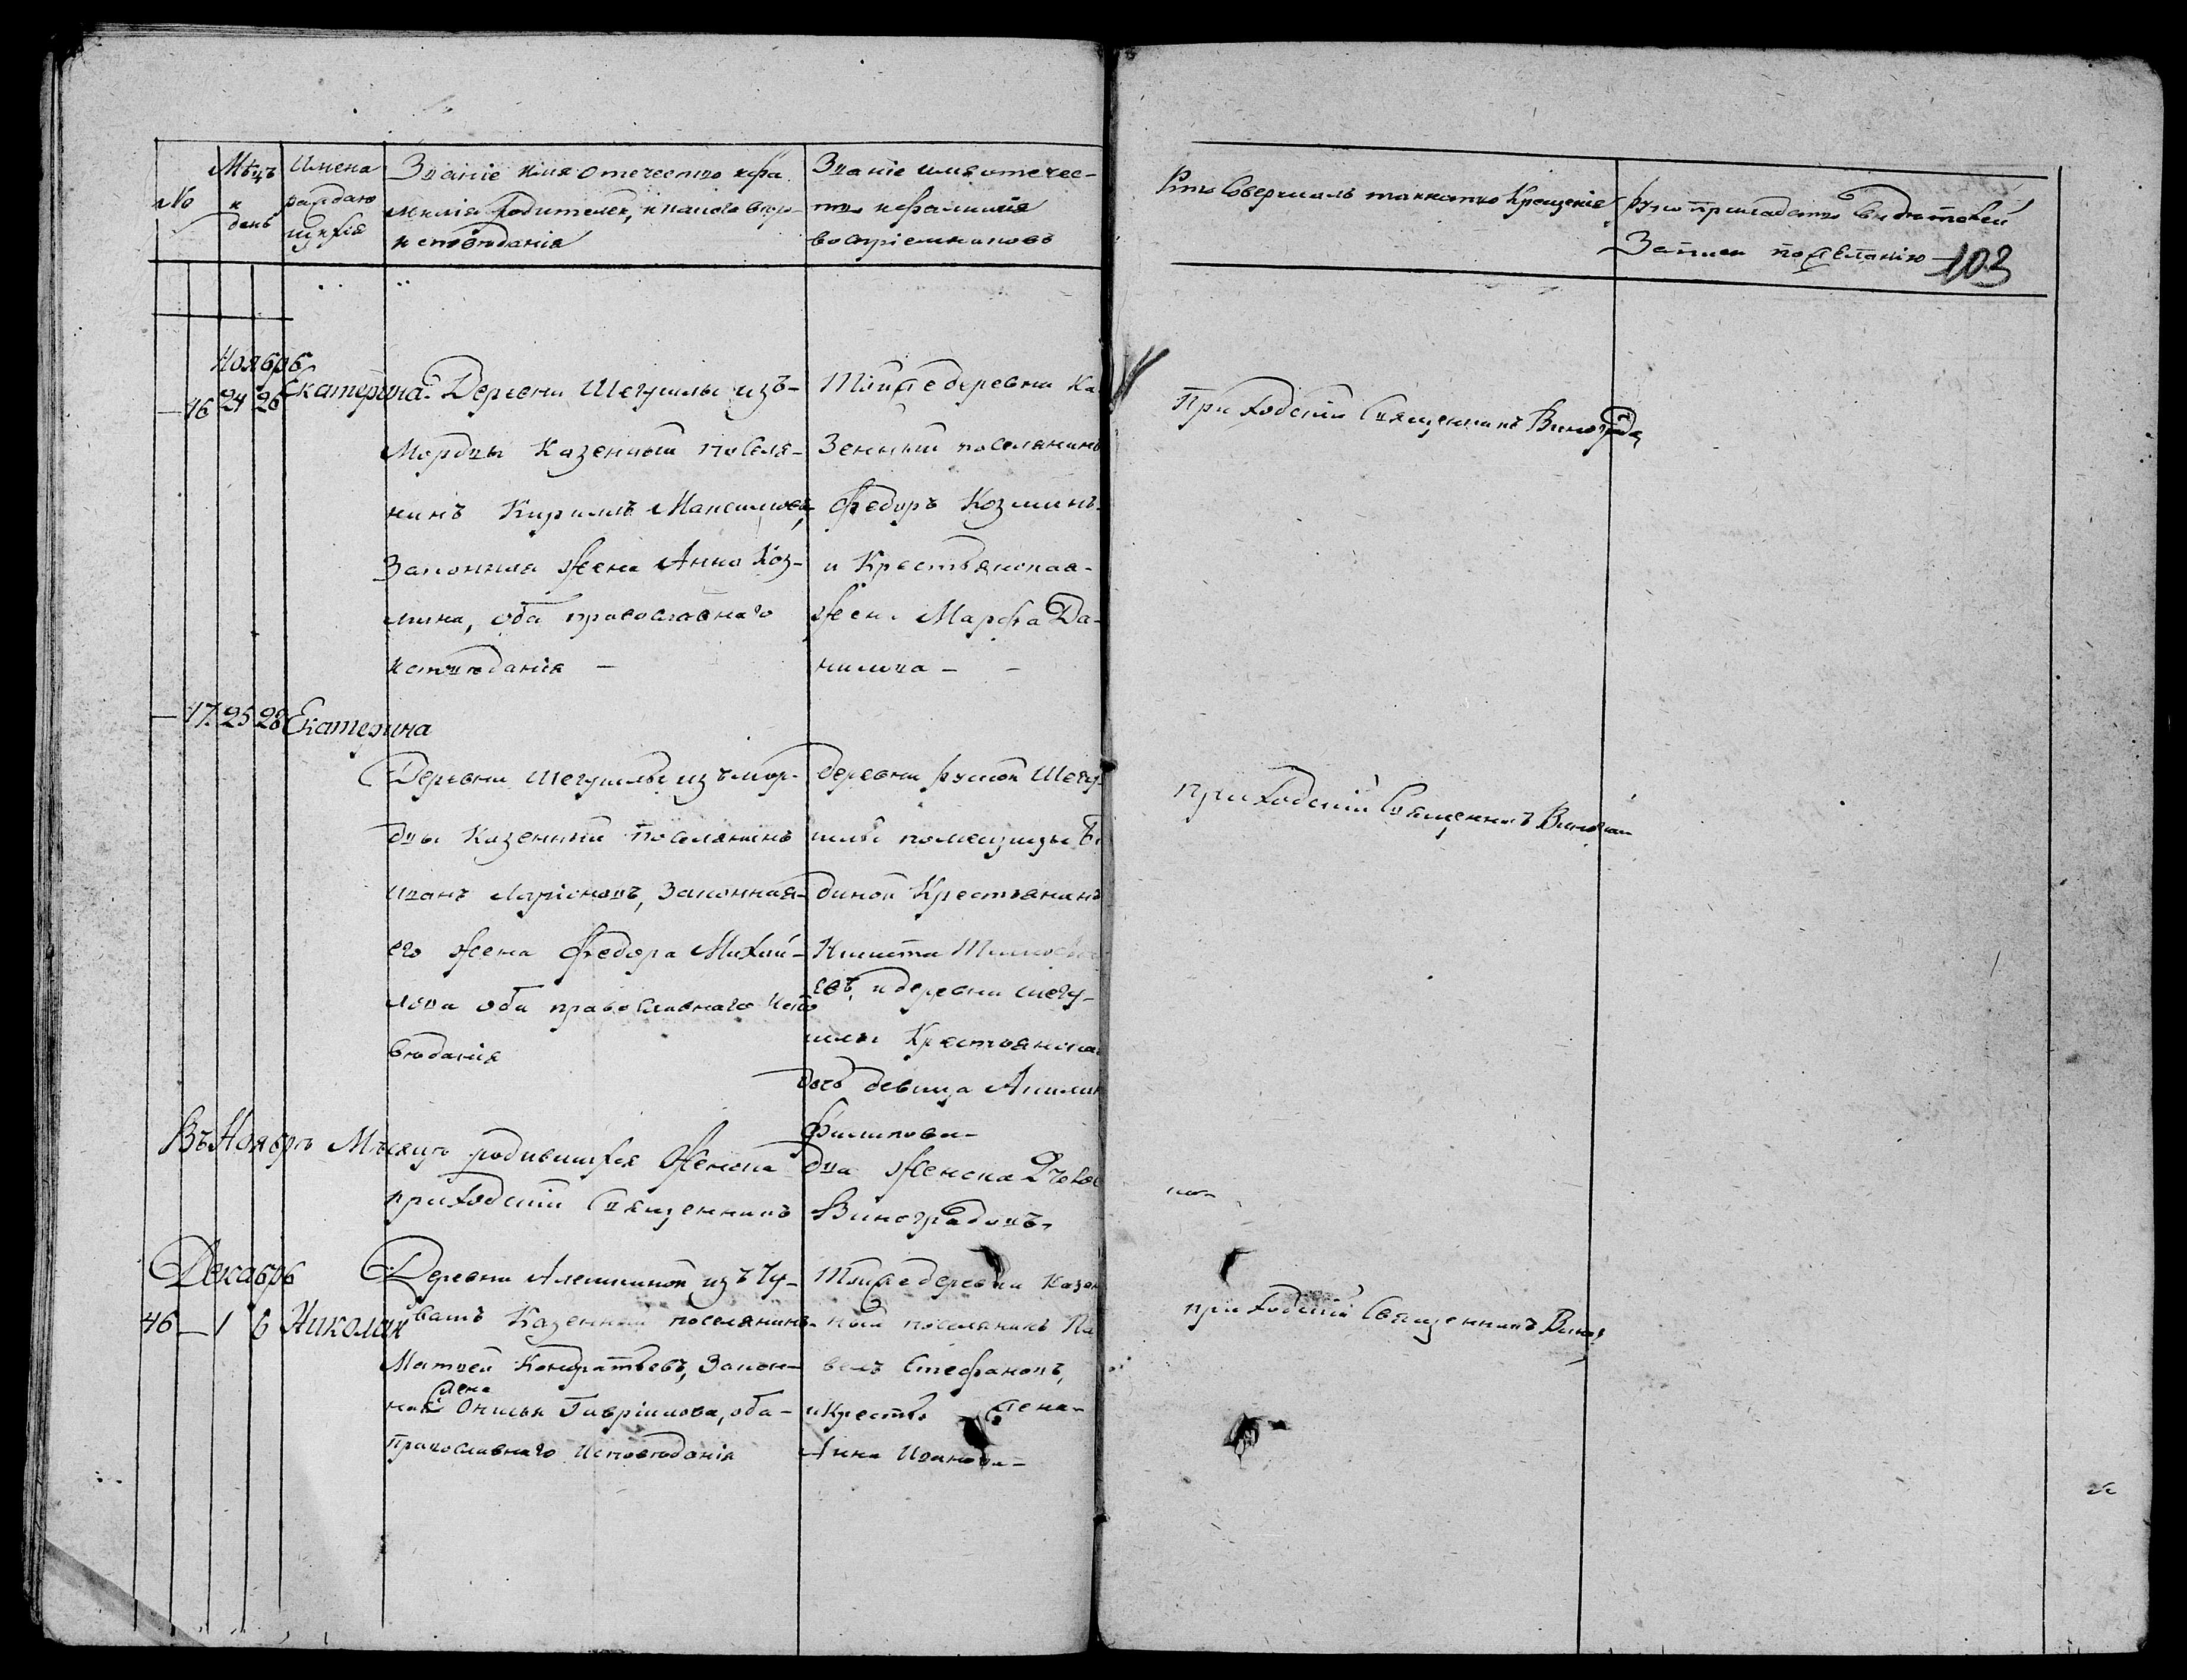 №
Мѣцъ и день
Имена раждающихся
Званіе имя отечество и фамилія родителей, и какого вѣроисповѣданія
Званіе имя отечество и фамилія воспріемниковъ
Кто совершалъ таинство крещенія
Рукоприкладство свидѣтелей
Записи по желанію
103
Ноябрь
16 24 26 Екатерина
Деревни Шегуршы изъ
Мордвы Казенный поселя-
нинъ Кириллъ Максимовъ,
Законная жена Анна Коз-
мина, оба православнаго
исповѣданія —
Тойже деревни Ка-
зенный поселянинъ
Федоръ Козминъ
и Крестьянская
жена Марфа Да-
нилова —
Приходскій Священникъ Виноград
17 25 28 Екатерина
Деревни из мор-
двы Казенный поселянинъ
Иванъ Ларіоновъ, Законная
его жена Федора Михай-
лова оба православнаго испо
вѣданія
деревни русской
помещицы
Крестьянинъ
Никита
евъ, и деревни
Крестьянская
дочь девица Акилин
Филипова
Приходскій Священникъ Виногра
Въ Ноябрѣ Мѣсяцѣ родившихся Женска два Женска 2 челове
ка
приходскій Священникъ Виноградовъ.
Декабрь
46 — 1 6 Николай
Деревни Алешкиной изъ Чу-
вашъ Казенный поселянинъ
Матвей Кондратьевъ, Закон-
ная жена Гавріилова, оба
Православнаго Исповѣданія
Тойже деревни Казен
ный поселянинъ Па
велъ Стефановъ,
и Крестья жена
Анна Иванова —
приходскій Священникъ Виног